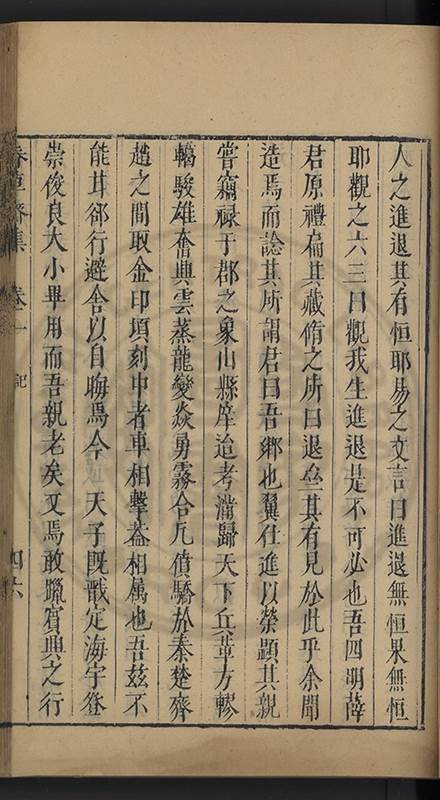 人之進退其有恒耶易之文言曰進退無恒果無恒
耶觀之六三曰觀我生進退是不可必也吾四明薛
君原禮扁其藏脩之所曰退𡋯其有見於此乎余聞
造焉而諗其所謂君曰吾鄉也翼仕進以榮顯其親
嘗竊祿于郡之象山縣庠迨考滿歸天下丘革方轇
轕駿雄奮興雲蒸龍變焱勇霧合凡僨驕於秦楚齊
趙之間取金印頃刻中者車相擊葢相属也吾茲不
能耳卻行避舍以自晦焉今天子既戡定海宇登
崇俊良大小畢用而吾親老矣又焉敢躐賓興之行
春草齋集 卷一 記 四六